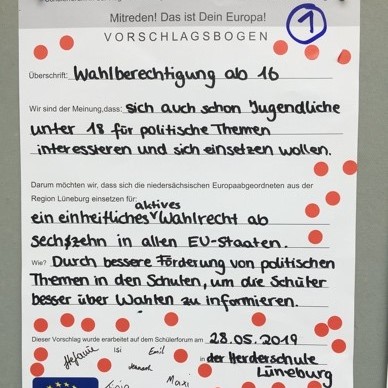 Mitreden! Das ist Dein Europa!
1
VORSCHLAGSBOGEN
Überschrift: Wahlberechtigung ab 16
Wir sind der Meinung, dass: sich auch schon Jugendliche
unter 18 für politische Themen
interessieren und sich einsetzen wollen.
Darum möchten wir, dass sich die niedersächsischen Europaabgeordneten aus der
Region Lüneburg einsetzen für:
aktives
ein einheitliches Wahlrecht ab
sechzehn in allen EU-Staaten.
Wie? Durch bessere Förderung von politischen
Themen in den Schulen, um die Schüler
besser über Wahlen zu informieren.
Dieser Vorschlag wurde erarbeitet auf dem Schülerforum am 28.05.2019
in der Herderschule
Lüneburg
Stefanie
Isi
Emil
Jannach
Maxi